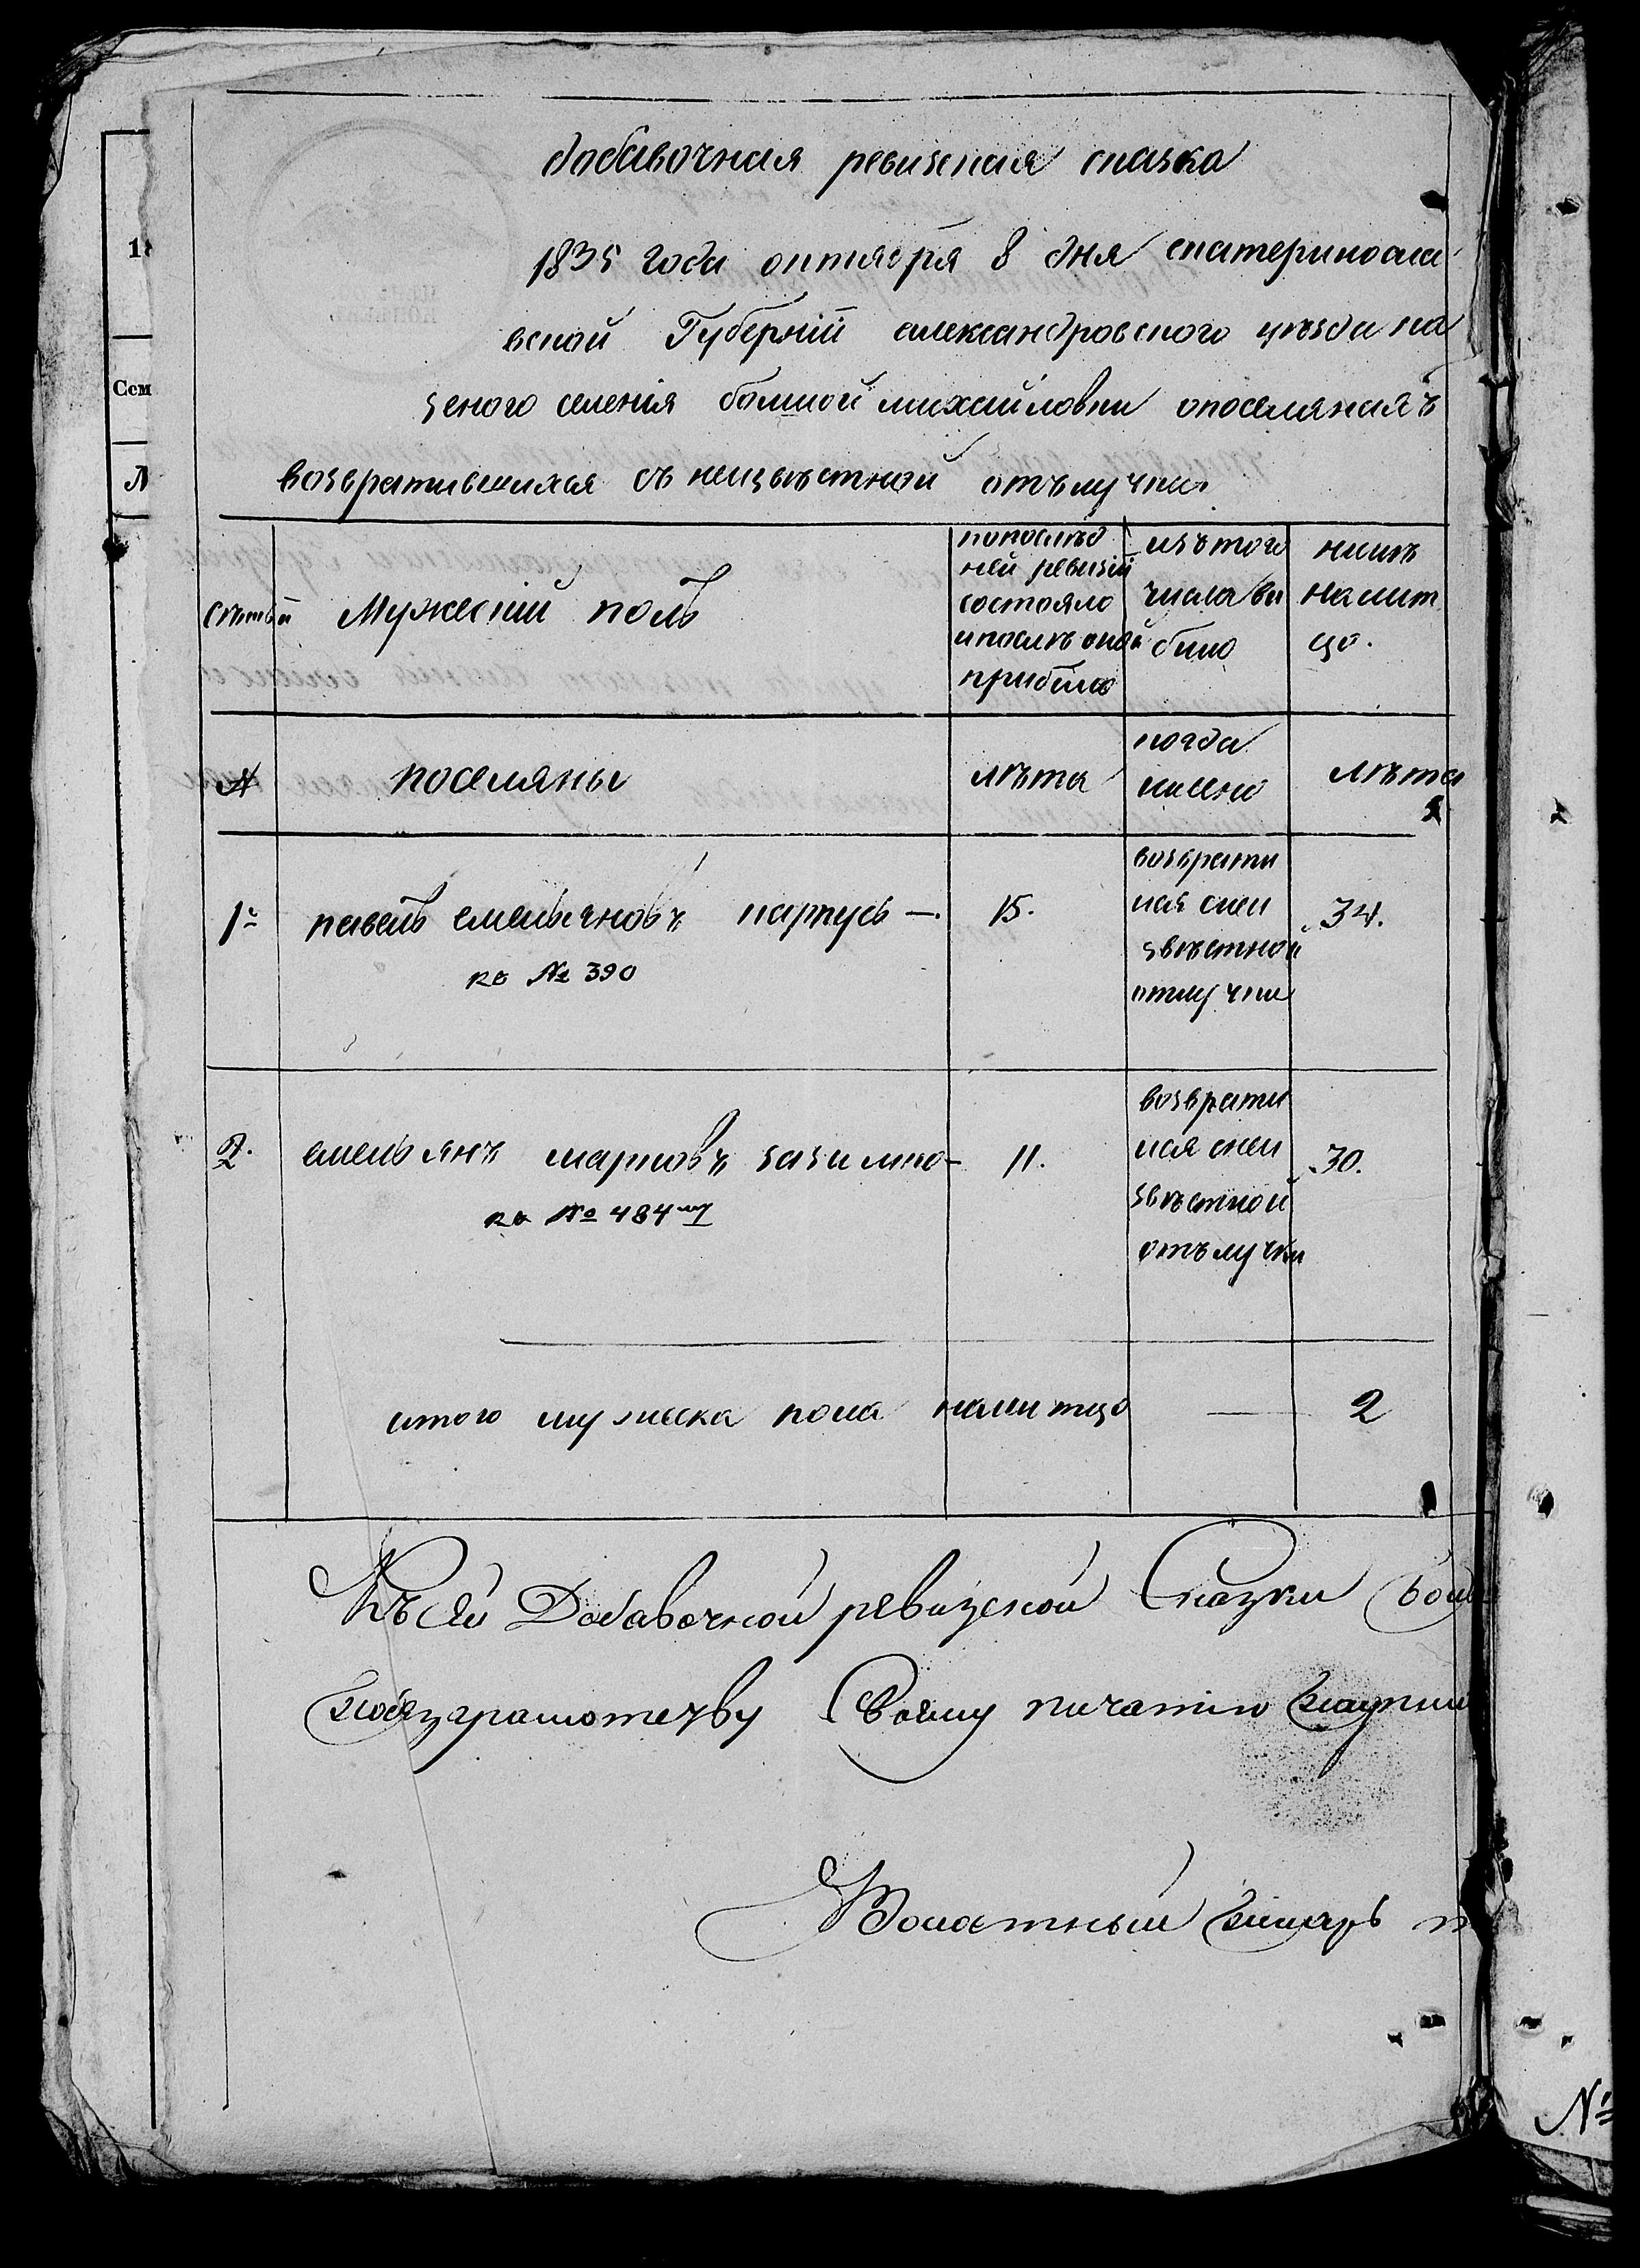 добавочная ревизская сказка
1835 года октября 8 дня екатериносла
вской Губерніи александровского уезда ка
зеного селенія болшой михайловки опоселянахъ
возвратившихся съ неизвѣстной отълучки
Мужескій полъ
попослѣд
ней ревизіи
состояло
ипослѣ оной
прибило
изътого
числа ви
било
нинѣ
налит
цо.
№
поселяны
лѣта
когда
имено
лѣта
1й
павелъ емельяновъ карпусь —
15.
возврати
лся снеи
звѣстной
отлучки
34.
ко № 390
2.
емельянъ марковъ зазимко —
11.
возврати
лся снеи
звѣстной
отълучки
30.
ко № 484му
итого мужеска пола налитцо — 2
Къ сей Добавочной ревизской Сказки
Своему печатию
Волостный писарь
18
Сем
№